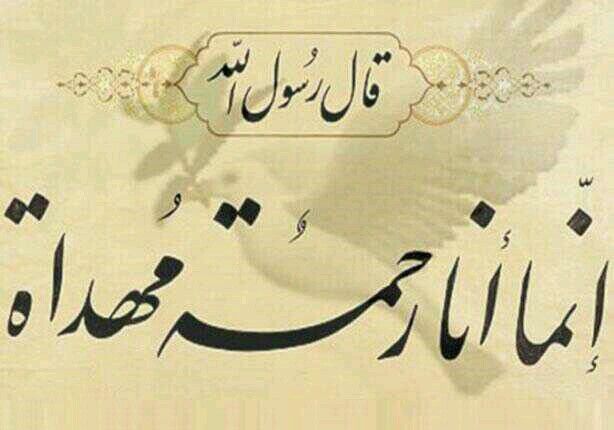 قال رسُول الله
إنّما أنا رحمةُ مُهداة